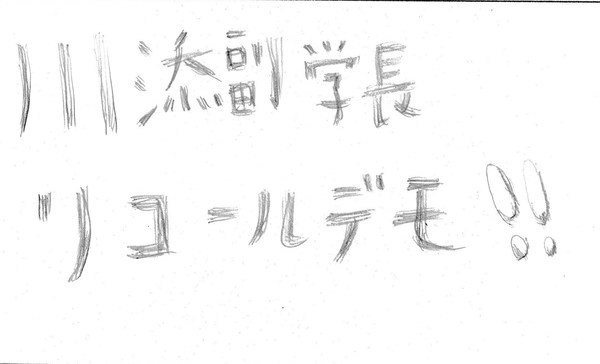 川添副学長
リコールデモ!!